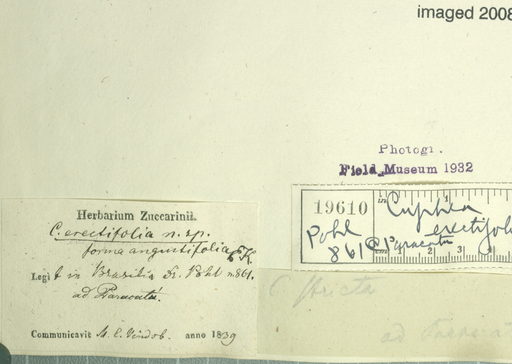 imaged 2008
Photogr.
Field Museum 1932
19610
Cuphea
erectifoli
Pohl
861 @ Paracatu
Herbarium Zuccarinii.
C. erectifolia n. sp.
forma angustifolia E.K.
Legit in Brasilia Dr. Pohl n. 861.
ad Paracatú.
Communicavit M. C. Vindob. anno 1839
C. stricta
ad Paracat